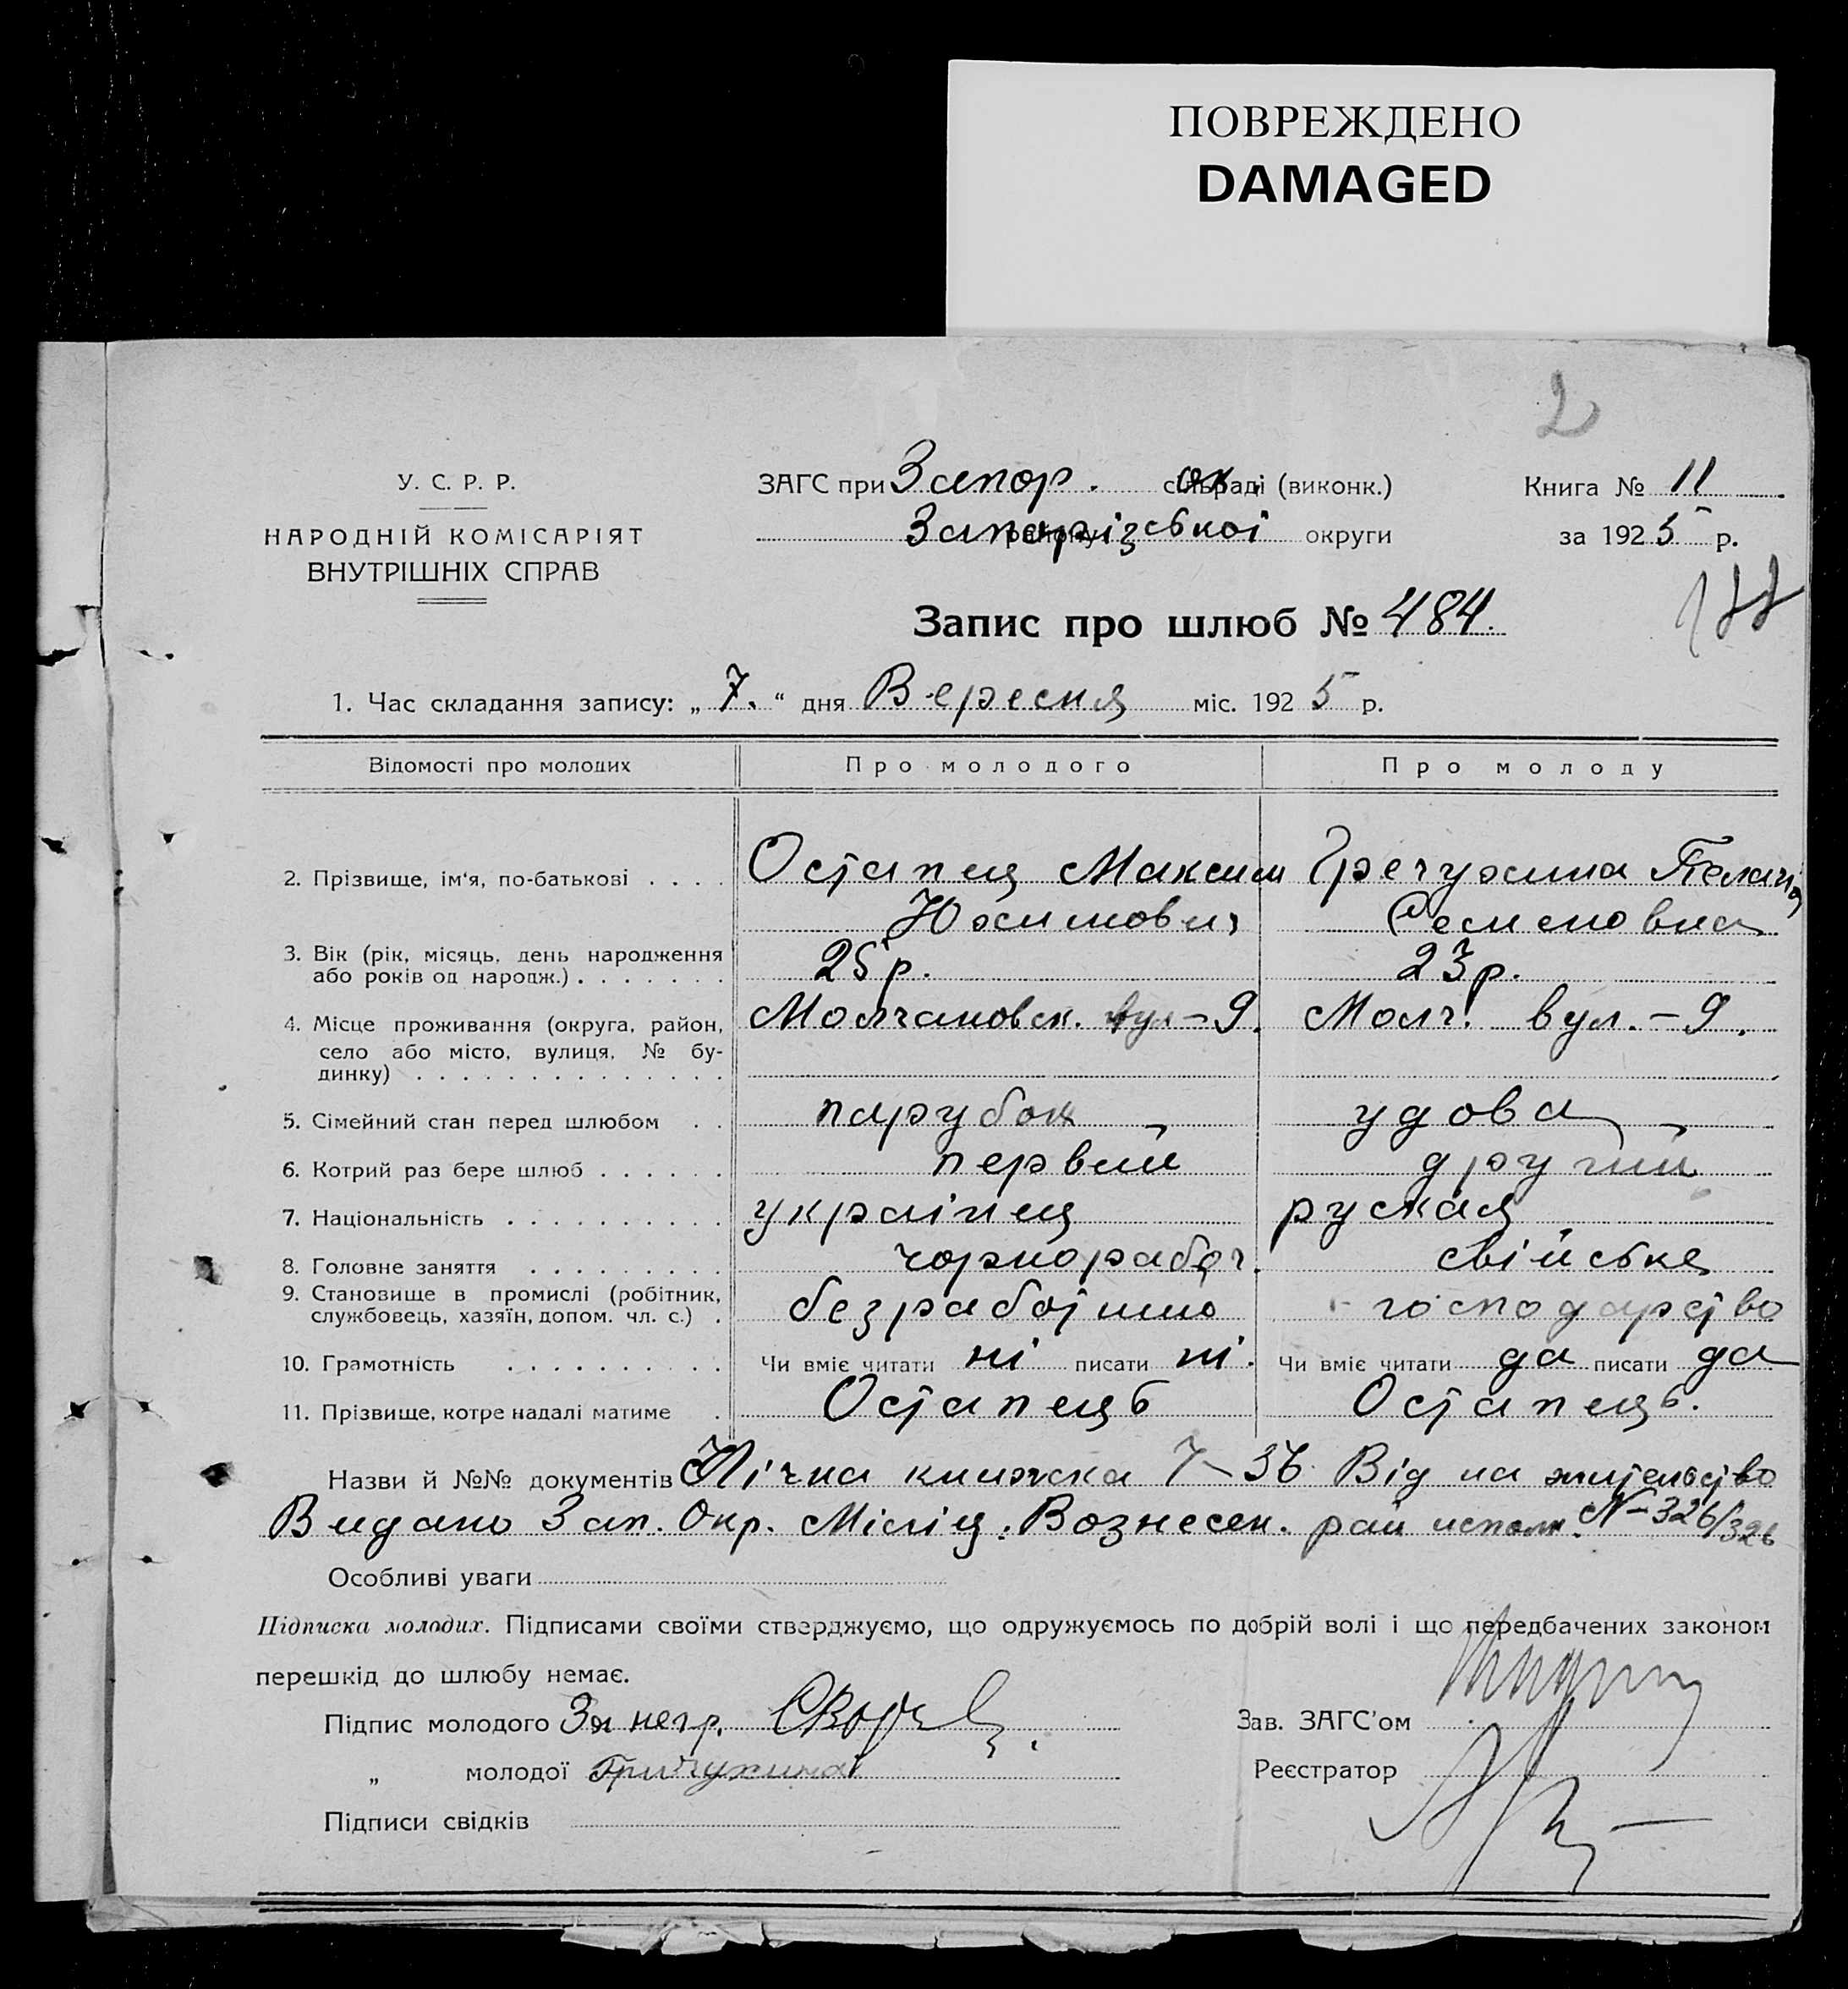 ПОВРЕЖДЕНО
DAMAGED
2
У. С. Р. Р.
НАРОДНІЙ КОМІСАРІЯТ
ВНУТРІШНІХ СПРАВ
ЗАГС при Запор. ок. сільраді (виконк.)
Запорізської округи
Книга № 11
за 1925 р.
Запис про шлюб № 484.
1. Час складання запису: „ 7. “ дня Вересня міс. 1925 р.
Відомості про молодих Про молодого Про молоду
2. Прізвище, ім‘я, по-батькові . . . . Остапец Максим Гречухина Пелагія
Юхимович Семеновна
3. Вік (рік, місяць, день народження
або років од народж.) . . . . . . . 25 р. 23 р.
4. Місце проживання (округа, район,
село або місто, вулиця, № бу-
динку) . . . . . . . . . . . . . . Молчановск. вул – 9. Молч. вул. – 9.
5. Сімейний стан перед шлюбом . . парубок удова
6. Котрий раз бере шлюб . . . . . . первий другий
7. Національність . . . . . . . . . . українец руская
8. Головне заняття . . . . . . . . . чорнорабоч. свійське
9. Становище в промислі (робітник,
службовець, хазяїн, допом. чл. с.) . безработний господарство
10. Грамотність . . . . . . . . . . Чи вміє читати ні писати ні. Чи вміє читати да писати да
11. Прізвище, котре надалі матиме . Остапець Остапець.
Назви й №№ документів книжка 7–36 Від на жительство
Видано Зап. Окр. Міліц: Вознесен. рай исполк. N–326/326
Особливі уваги
Підписка молодих. Підписами своїми стверджуємо, що одружуємось по добрій волі і що передбачених законом
перешкід до шлюбу немає.
Підпис молодого За негр.
„ молодої Гричухина
Підписи свідків
Зав. ЗАГС’ом
Реєстратор